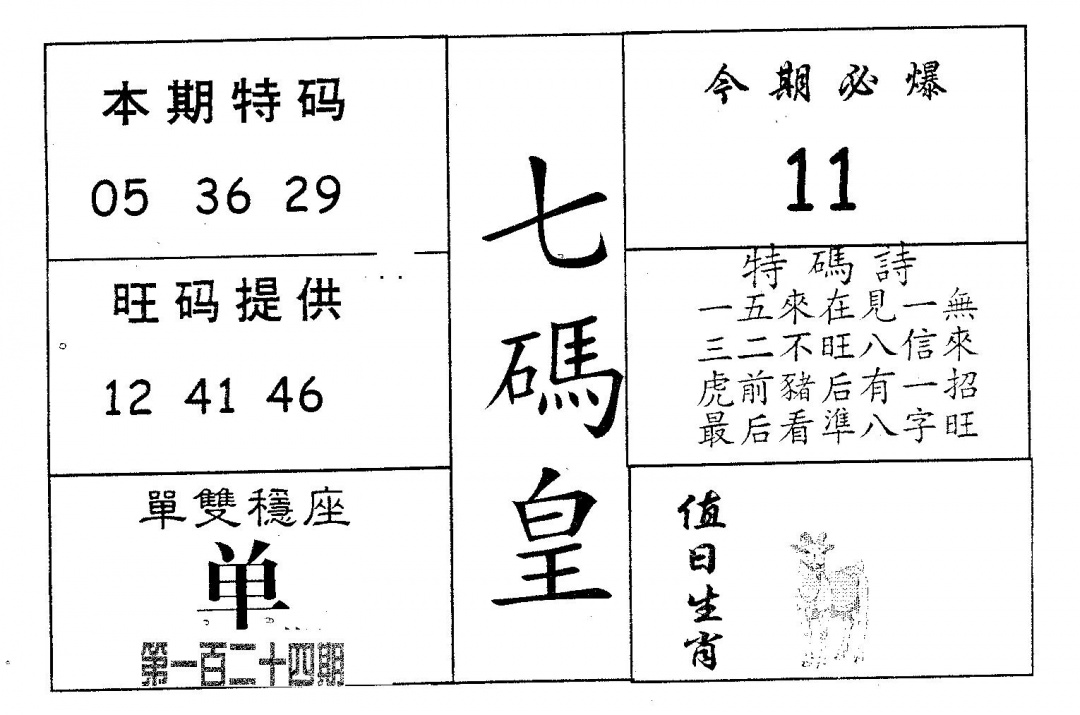 本期特码
05 36 29
旺码提供
12 41 46
單雙穩座
单
第一百二十四期
七
碼
皇
今期必爆
11
特碼詩
一五來在見一無
三二不旺八信來
虎前豬后有一招
最后看準八字旺
值日生肖